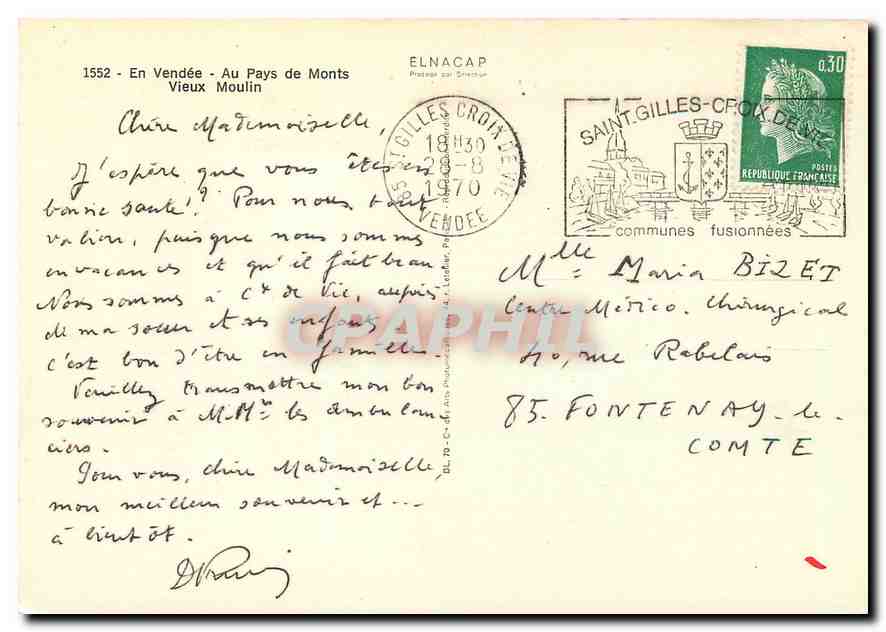 1552 - En Vendée - Au Pays de Monts
Vieux Moulin
ELNACAP
Chère Mademoiselle,
J'espère que vous êtes en
bonne santé!? Pour nous tout
va bien, puisque nous sommes
en vacances et qu'il fait beau
Nous sommes à Cx de Vie, auprès
de ma soeur et ses enfants
c'est bon d'être en famille.
Veuillez transmettre mon bon
souvenir à M.Mrs les ambulan
ciers.
Pour vous, chère Mademoiselle,
mon meilleur souvenir et ...
à bientôt.
85 ST GILLES CROIX DE VIE
18H30
-8
1970
VENDEE
SAINT.GILLES-CROIX.DE.VIE
communes fusionnées
0,30
POSTES
REPUBLIQUE FRANÇAISE
Mlle Maria BIZET
Centre Médico. Chirurgical
40, rue Rabelais
85. FONTENAY-le-
COMTE
CPAPHIL